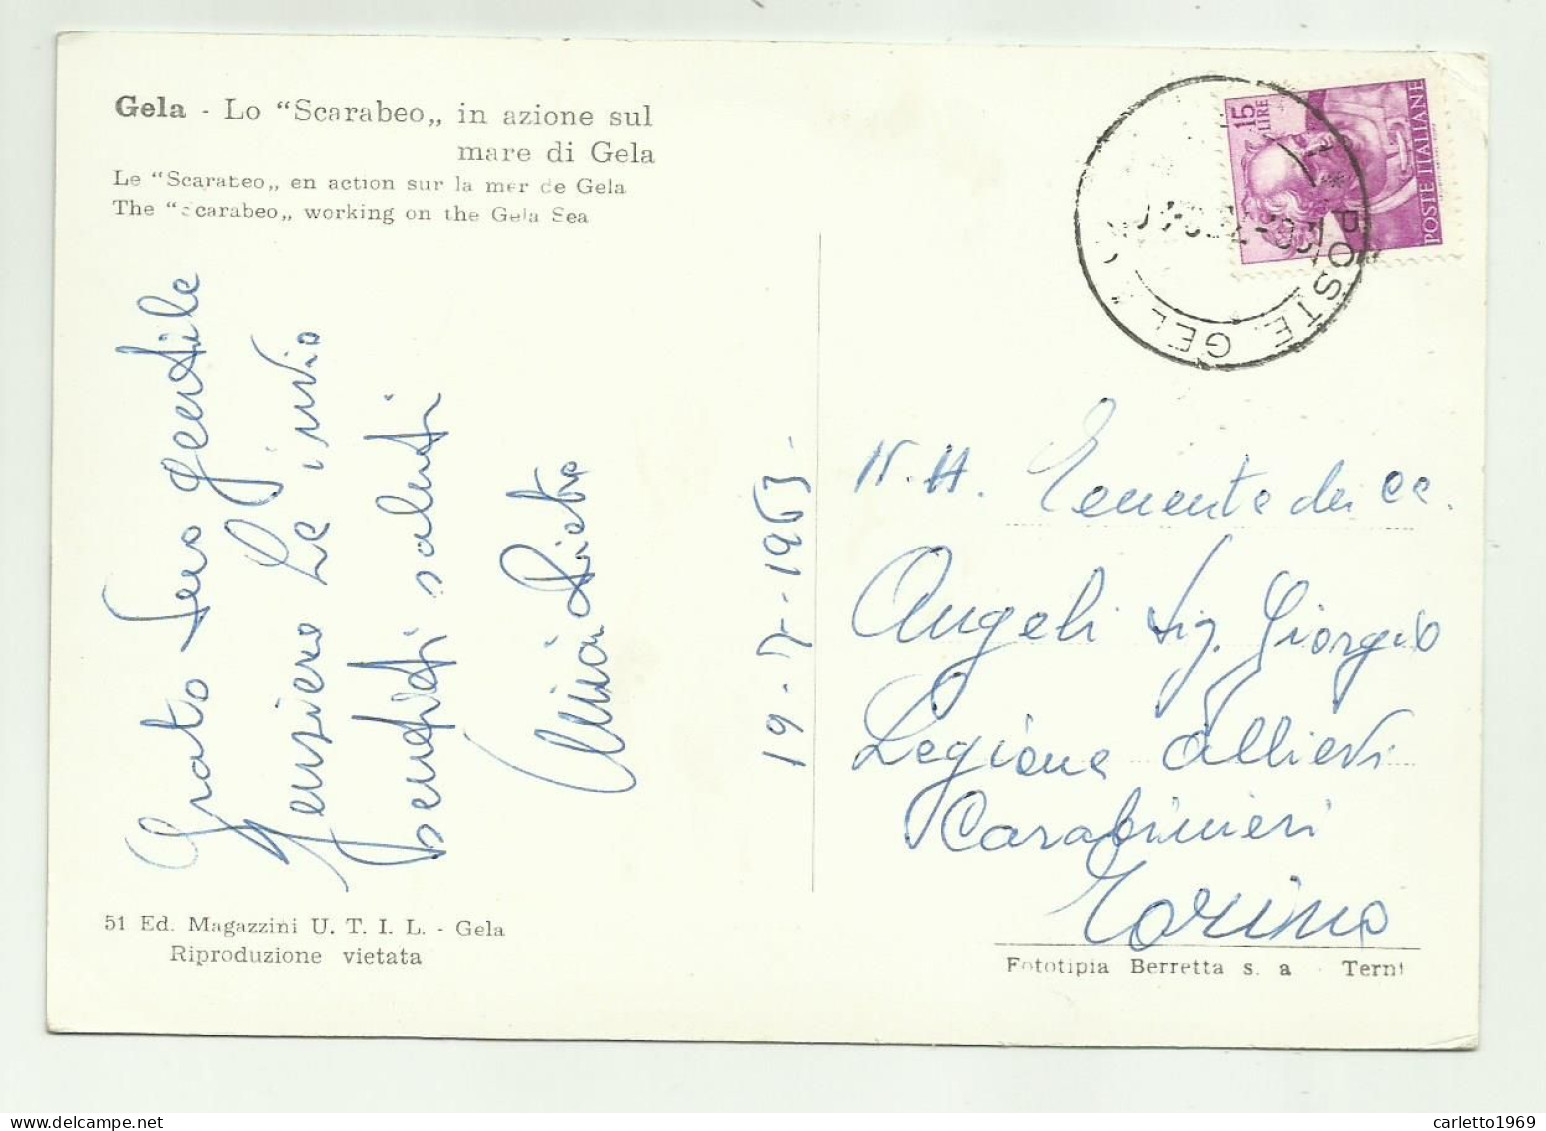 Gela - Lo “Scarabeo„ in azione sul
mare di Gela
Le “Scarabeo„ en action sur la mer de Gela
The “Scarabeo„ working on the Gela Sea
Grato suo gentile
pensiero Le invio
sentiti saluti
19-7-1963-
51 Ed. Magazzini U. T. I. L. - Gela
Riproduzione vietata
15
LIRE
POSTE ITALIANE
POSTE GELA
N.H. Tenente dei CC.
Angeli Sig. Giorgio
Legione Allievi
Carabinieri
Torino
Fototipia Berretta s. a - Terni
carletto1969